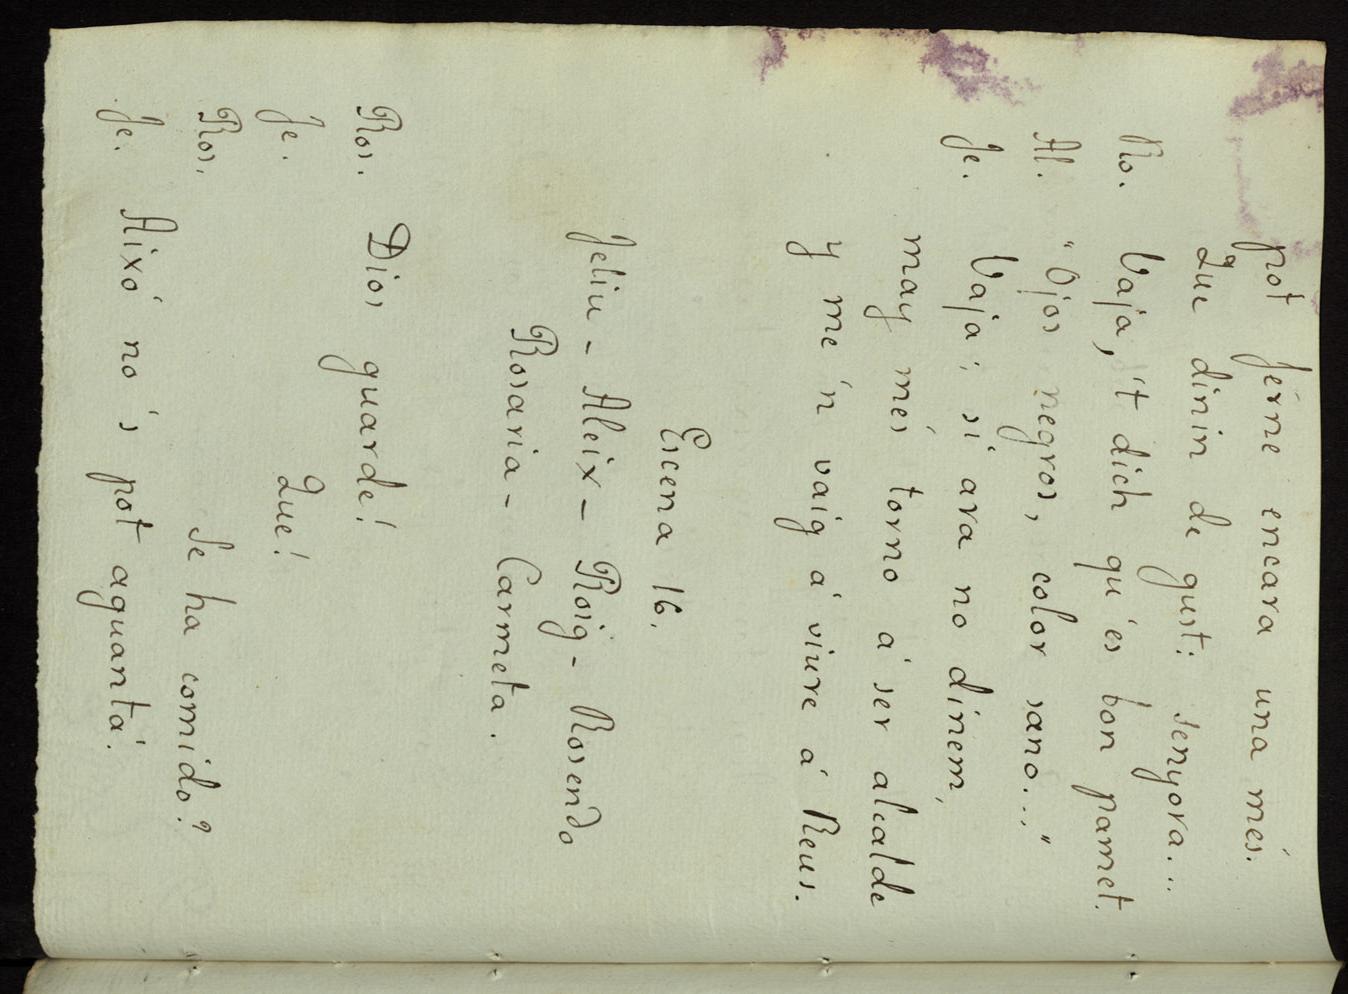 pot férme encara una més.
Que dinin de gust: senyora...
Ro. Vaja, 't dich qu'es bon pamet.
Al. "Ojos negros, color sano..."
Je. Vaja; si ara no dinem,
may més torno á ser alcalde
y me 'n vaig á viure á Reus.
Escena 16.
Jeliu - Aleix - Roig - Rosendo
Rosaria - Carmeta.
Ros. Dios guarde!
Je. Que!
Ros. Se ha comido?
Je. Aixó nó 's pot aguantá.